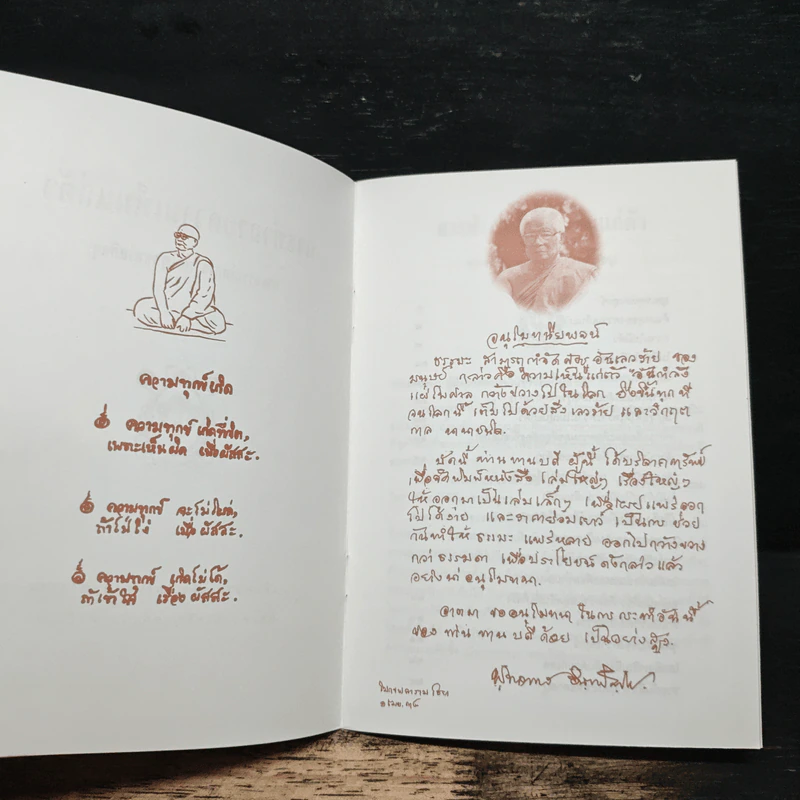 ความทุกข์เกิด
๏ ความทุกข์ เกิดที่จิต,
เพราะเห็นผิด เมื่อผัสสะ.
๏ ความทุกข์ จะไม่โผล่,
ถ้าไม่โง่ เมื่อผัสสะ.
๏ ความทุกข์ เกิดไม่ได้,
ถ้าเข้าใจ เรื่องผัสสะ.
อนุโมทนียพจน์
ธรรมะ สามารถกำจัดศัตรู อันเลวร้าย ของ
มนุษย์ กล่าวคือ ความเห็นแก่ตัว อันกำลัง
แผ่ไพศาล กว้างขวางไปในโลก ยิ่งขึ้นทุกที
จนโลกนี้ เต็มไปด้วยสิ่งเลวร้าย และวิกฤต
กาล นานาชนิด.
บัดนี้ ท่านทานบดี ผู้นี้ ได้บริจาคทรัพย์
เพื่อจัดพิมพ์หนังสือ เล่มใหญ่ๆ เรื่องใหญ่ๆ
ให้ออกมาเป็นเล่มเล็กๆ เพื่อเผยแพร่ออก
ไปได้ง่าย และราคาย่อมเยาว์ เป็นการช่วย
กันทำให้ ธรรมะ แพร่หลาย ออกไปกว้างขวาง
กว่า ธรรมดา เพื่อประโยชน์ ดังกล่าวแล้ว
อย่างน่าอนุโมทนา.
อาตมา ขออนุโมทนา ในการกระทำอันนี้
ของ ท่านทานบดีด้วย เป็นอย่างสูง.
พุทธทาส อินฺทปญฺโญ.
โมกขพลาราม ไชยา